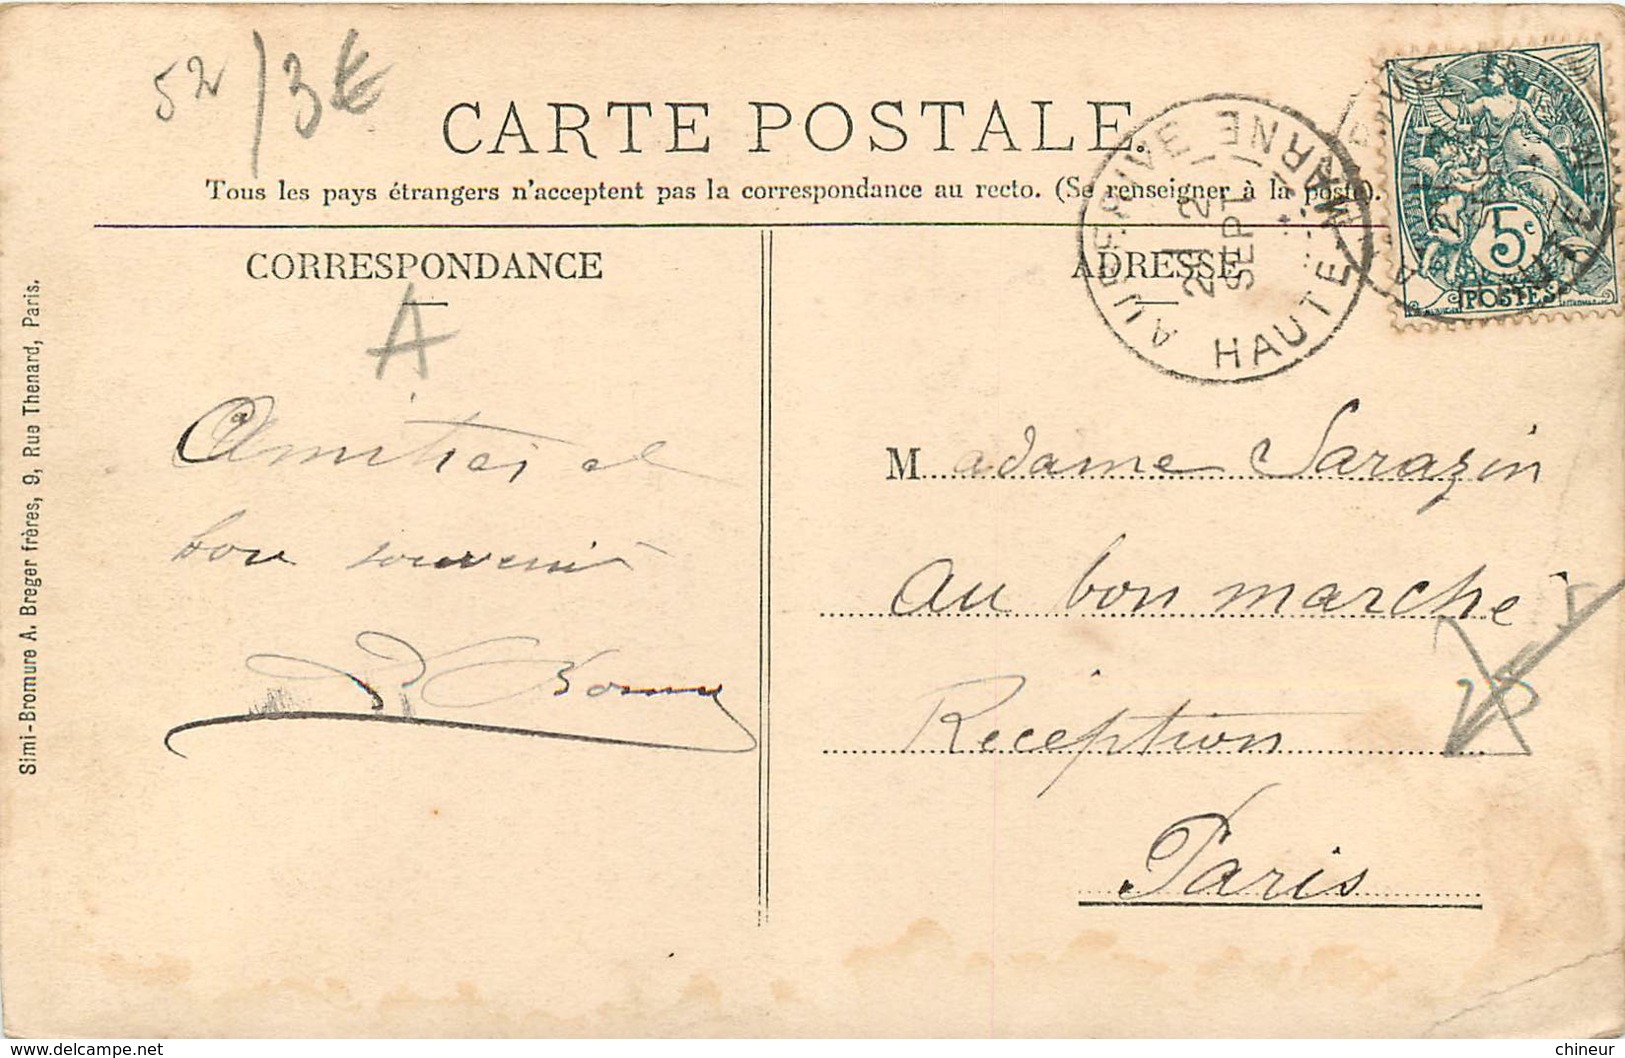 52/3€
CARTE POSTALE.
Tous les pays étrangers n'acceptent pas la correspondance au recto. (Se renseigner à la poste).
CORRESPONDANCE
A
Amitiés et
bon souvenir
ADRESSE
AUBERIVE
HAUTE-MARNE
SEPT
5c
POSTES
Madame Sarazin
au bon marché
Réception
Paris
Simi-Bromure A. Breger frères, 9, Rue Thenard, Paris.
chineur